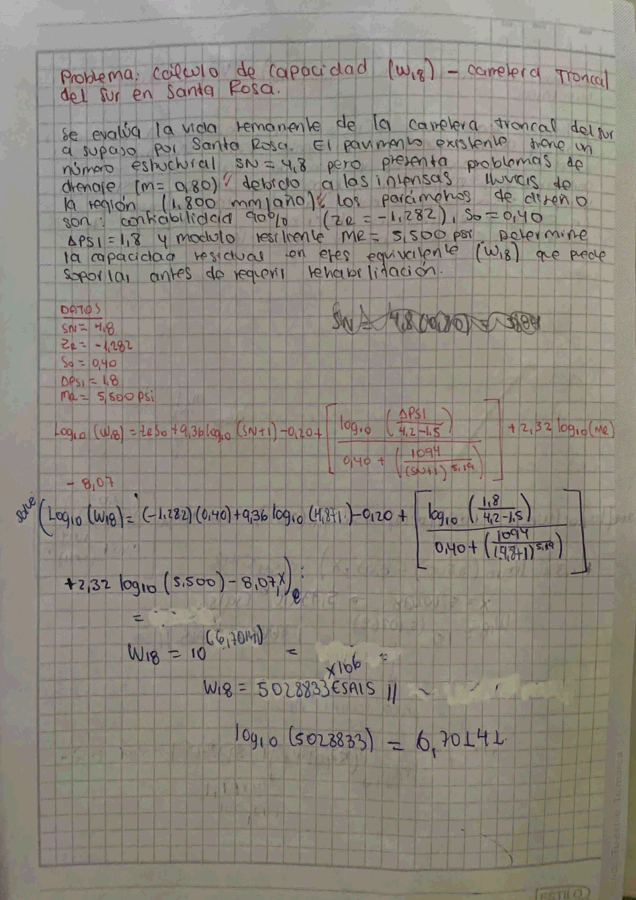 Problema: Cálculo de capacidad (W18) – carretera Troncal
del sur en Santa Rosa.
Se evalúa la vida remanente de la carretera troncal del sur
a su paso por Santa Rosa. El pavimento existente tiene un
número estructural SN = 4,8 pero presenta problemas de
drenaje (m = 0,80) debido a las intensas lluvias de
la región (1,800 mm/año). Los parámetros de diseño
son: confiabilidad 90% (ZR = -1,282), So = 0,40
ΔPSI = 1,8 y modulo resiliente MR = 5,500 psi. Determine
la capacidad residual en ejes equivalente (W18) que puede
soportar antes de requerir rehabilitación.
DATOS
SN = 4,8
ZR = -1,282
So = 0,40
ΔPSI = 1,8
MR = 5,500 psi
Log10 (W18) = ZR So + 9,36 log10 (SN+1) - 0,20 + [ log10 ( ΔPSI / 4,2-1,5 ) / 0,40 + ( 1094 / (SN+1)^5,19 ) ] + 2,32 log10 (MR)
- 8,07
solve (Log10 (W18) = (-1,282)(0,40) + 9,36 log10 (4,8+1) - 0,20 + [ log10 ( 1,8 / 4,2-1,5 ) / 0,40 + ( 1094 / (4,8+1)^5,19 ) ]
+ 2,32 log10 (5,500) - 8,07, x)
=
W18 = 10^(6,70141) = =
x10^6
W18 = 5028833 ESALS //
log10 (5028833) = 6,70141
ESTILO